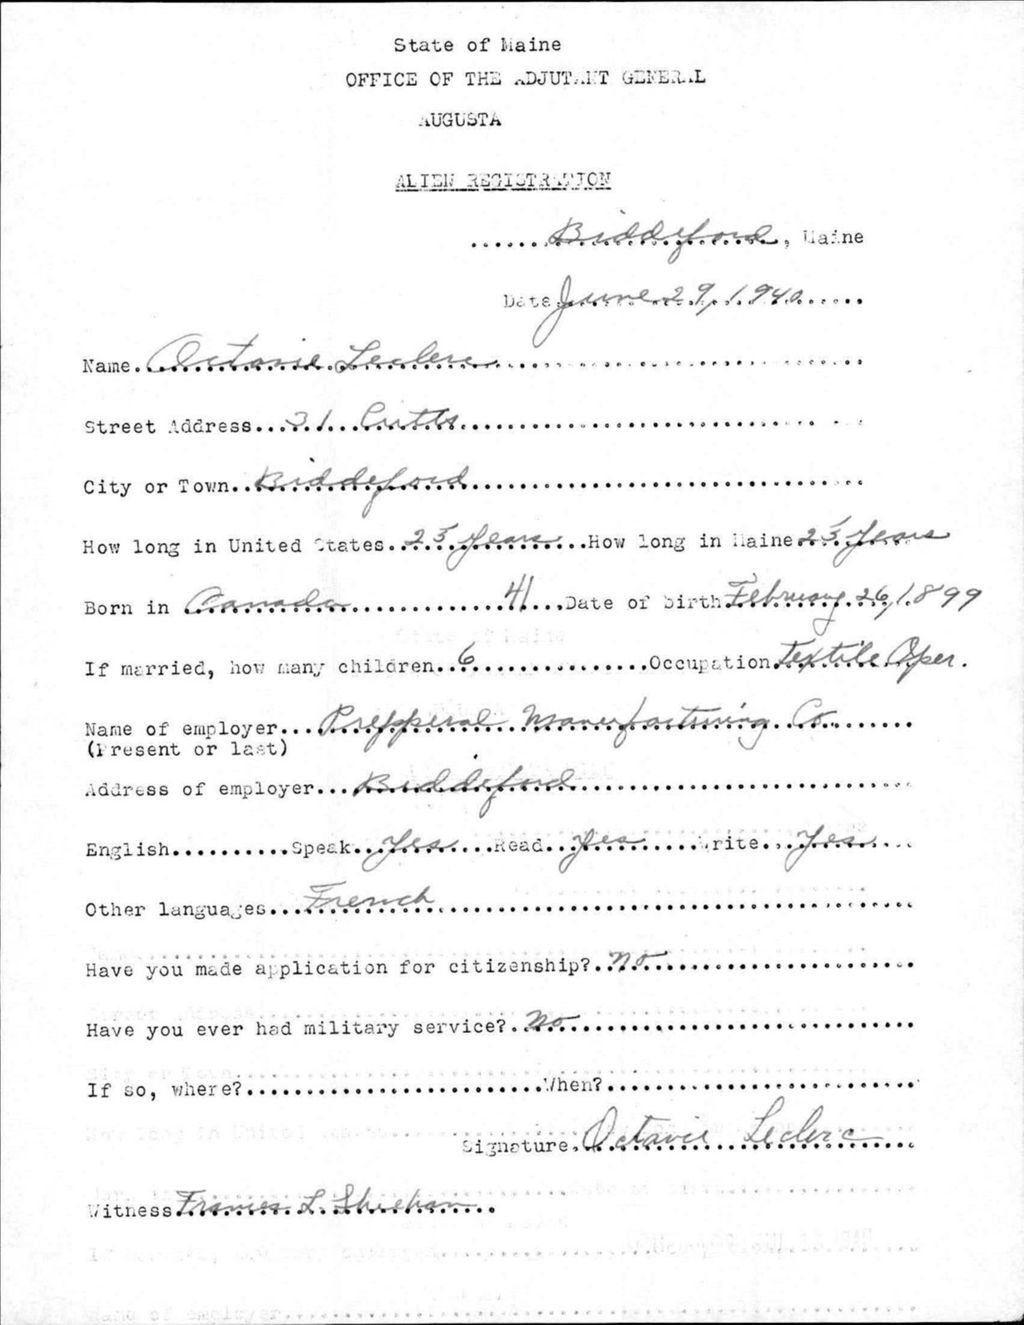 State of Maine
OFFICE OF THE ADJUTANT GENERAL
AUGUSTA
ALIEN REGISTRATION
Biddeford, Maine
Date June 29, 1940
Name. Octavie Leclerc
Street Address... 31 Cutts
City or Town.. Biddeford
How long in United States.. 25 years ..How long in Maine 25 years
Born in Canada 41 ...Date of birth February 26, 1899
If married, how many children.. 6 ..Occupation. Textile Oper.
Name of employer... Pepperal Manufacturing Co.
(Present or last)
Address of employer... Biddeford
English..........Speak.. Yes ....Read.. Yes .....Write.. Yes
Other languages... French
Have you made application for citizenship?.. no
Have you ever had military service?. no
If so, where?..........................When?..........................
Signature. Octavie Leclerc
Witness Frances L. Sheehan